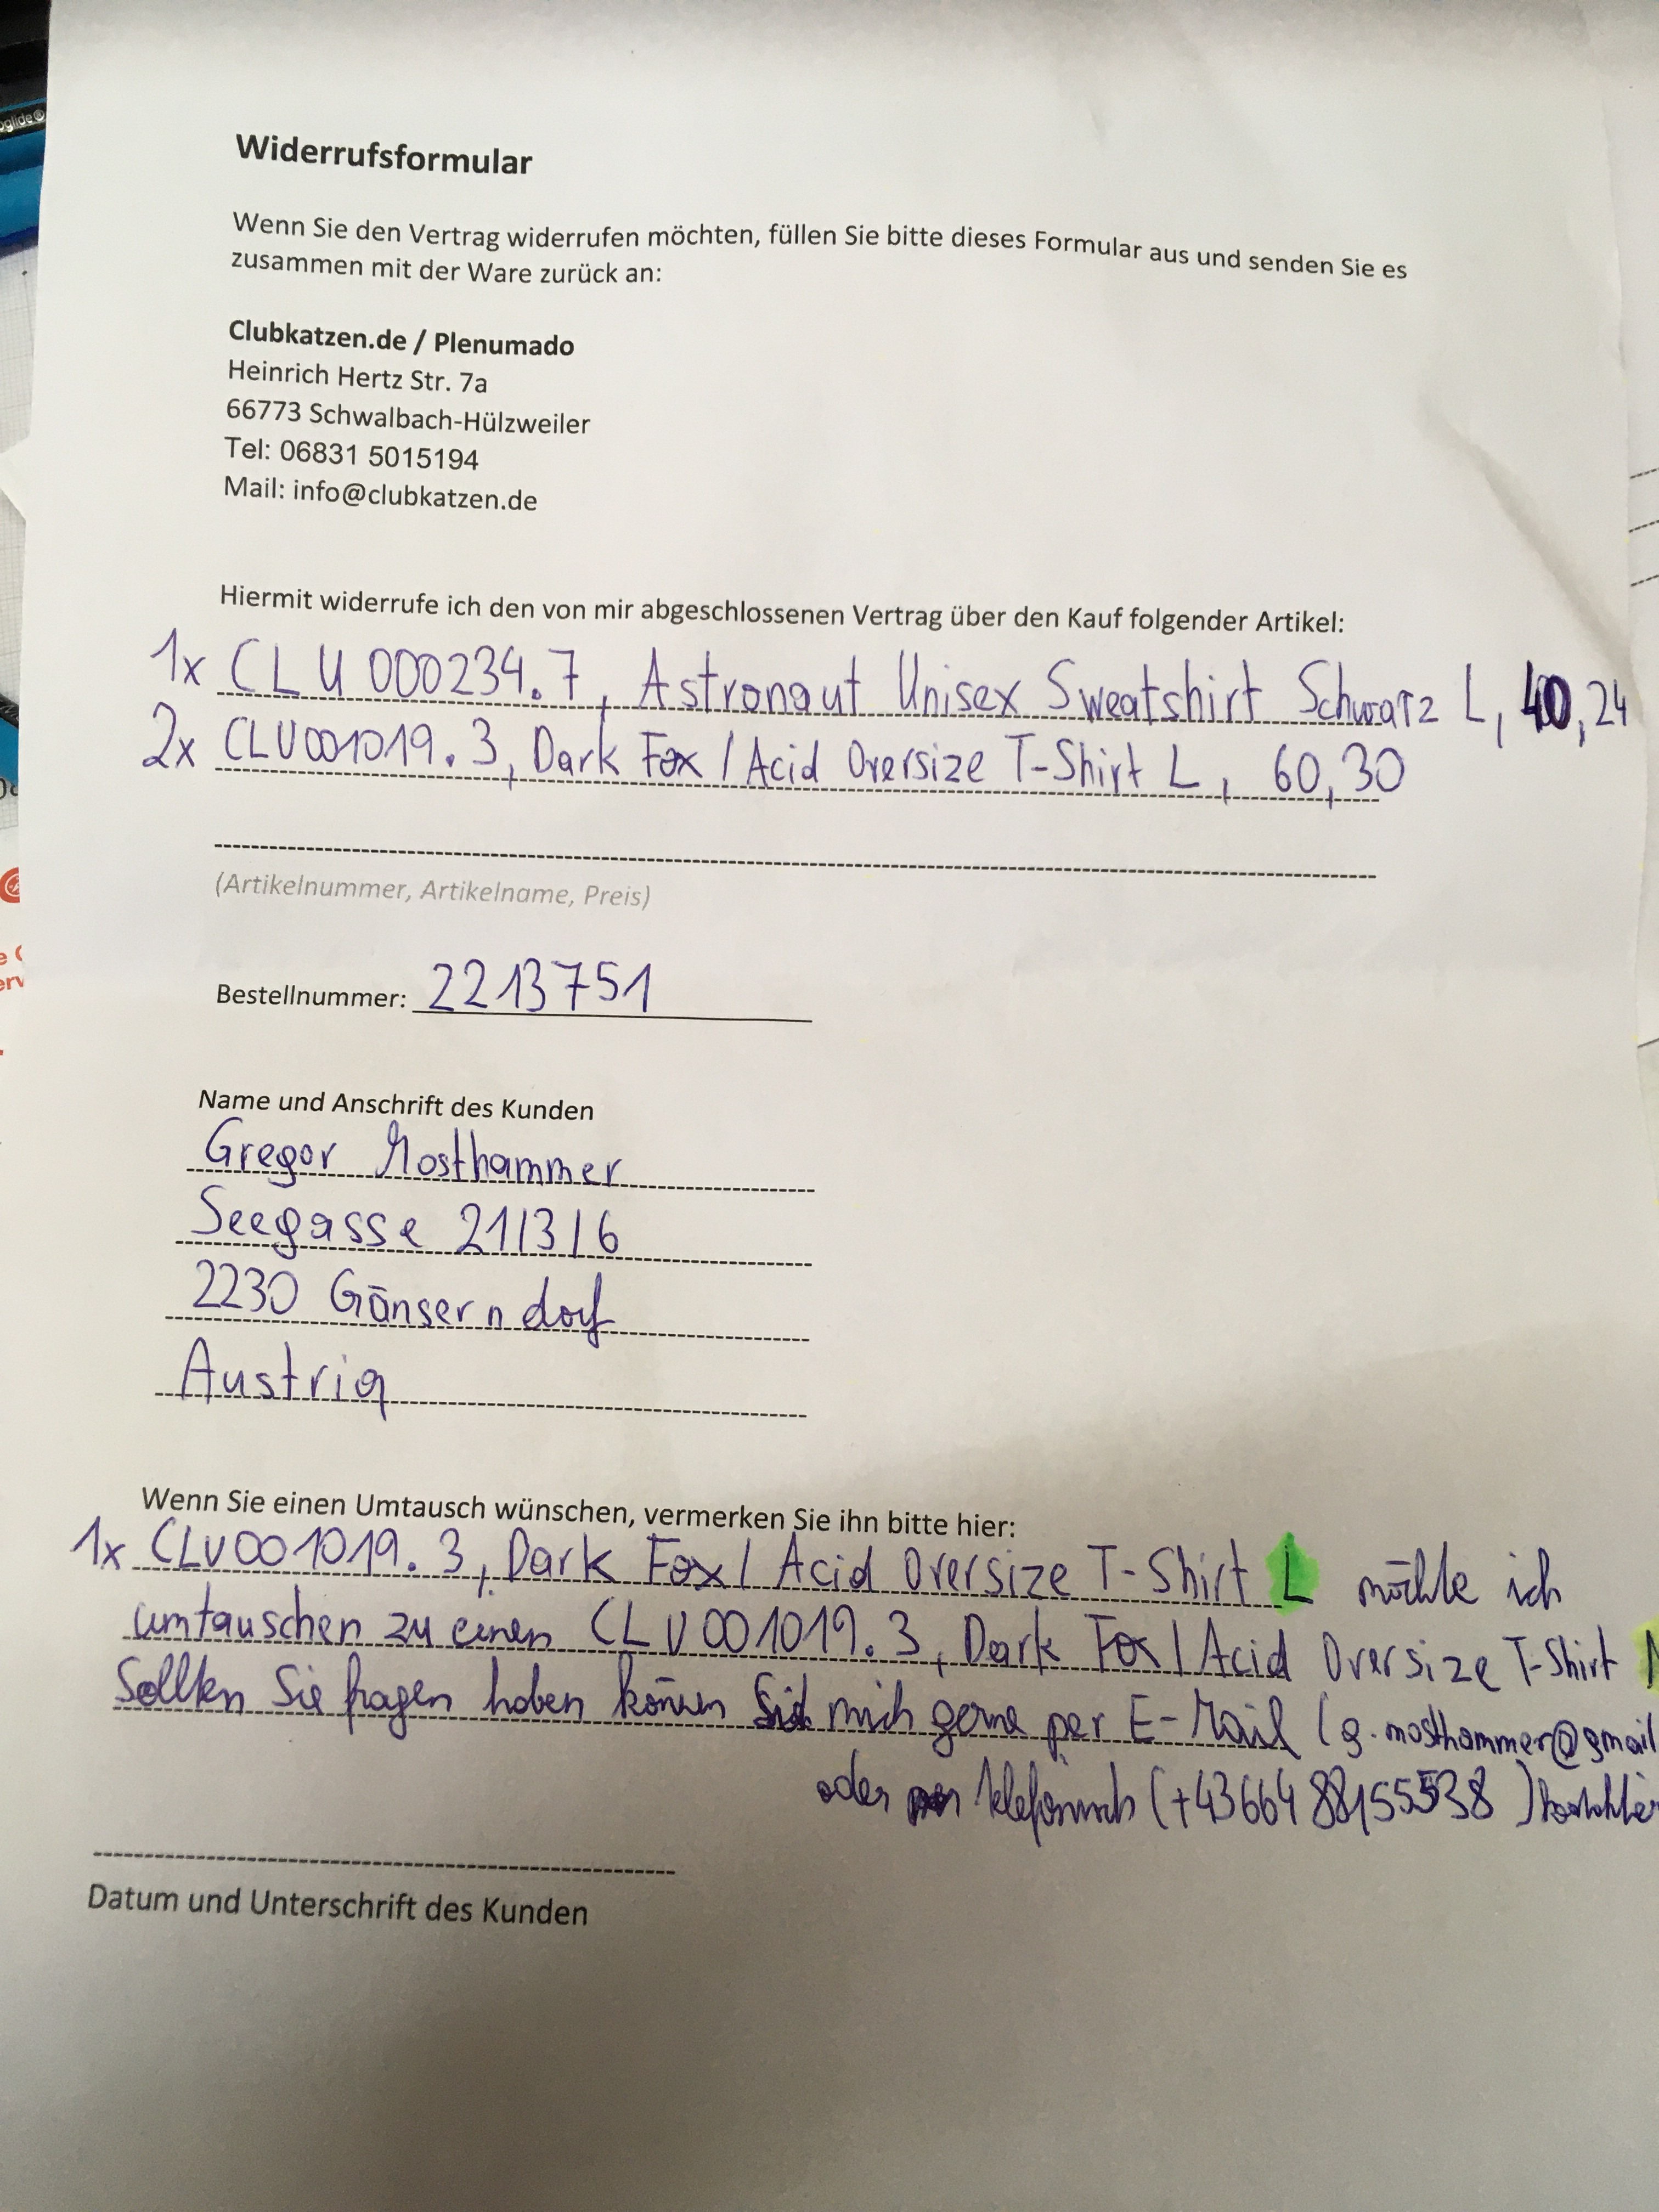 oglide®
Widerrufsformular
Wenn Sie den Vertrag widerrufen möchten, füllen Sie bitte dieses Formular aus und senden Sie es
zusammen mit der Ware zurück an:
Clubkatzen.de / Plenumado
Heinrich Hertz Str. 7a
66773 Schwalbach-Hülzweiler
Tel: 06831 5015194
Mail: info@clubkatzen.de
Hiermit widerrufe ich den von mir abgeschlossenen Vertrag über den Kauf folgender Artikel:
1x CLU000234.7, Astronaut Unisex Sweatshirt Schwarz L, 40,24
2x CLU001019.3, Dark Fox / Acid Oversize T-Shirt L, 60,30
(Artikelnummer, Artikelname, Preis)
Bestellnummer: 2213751
Name und Anschrift des Kunden
Gregor Mosthammer
Seegasse 21/3/6
2230 Gänserndorf
Austria
Wenn Sie einen Umtausch wünschen, vermerken Sie ihn bitte hier:
1x CLU001019.3, Dark Fox / Acid Oversize T-Shirt L möchte ich
umtauschen zu einen CLU001019.3, Dark Fox / Acid Oversize T-Shirt
Sollten Sie fragen haben können Sie mich gerne per E-Mail (g.mosthammer@gmail
oder telefonisch (+4366488155538)
Datum und Unterschrift des Kunden